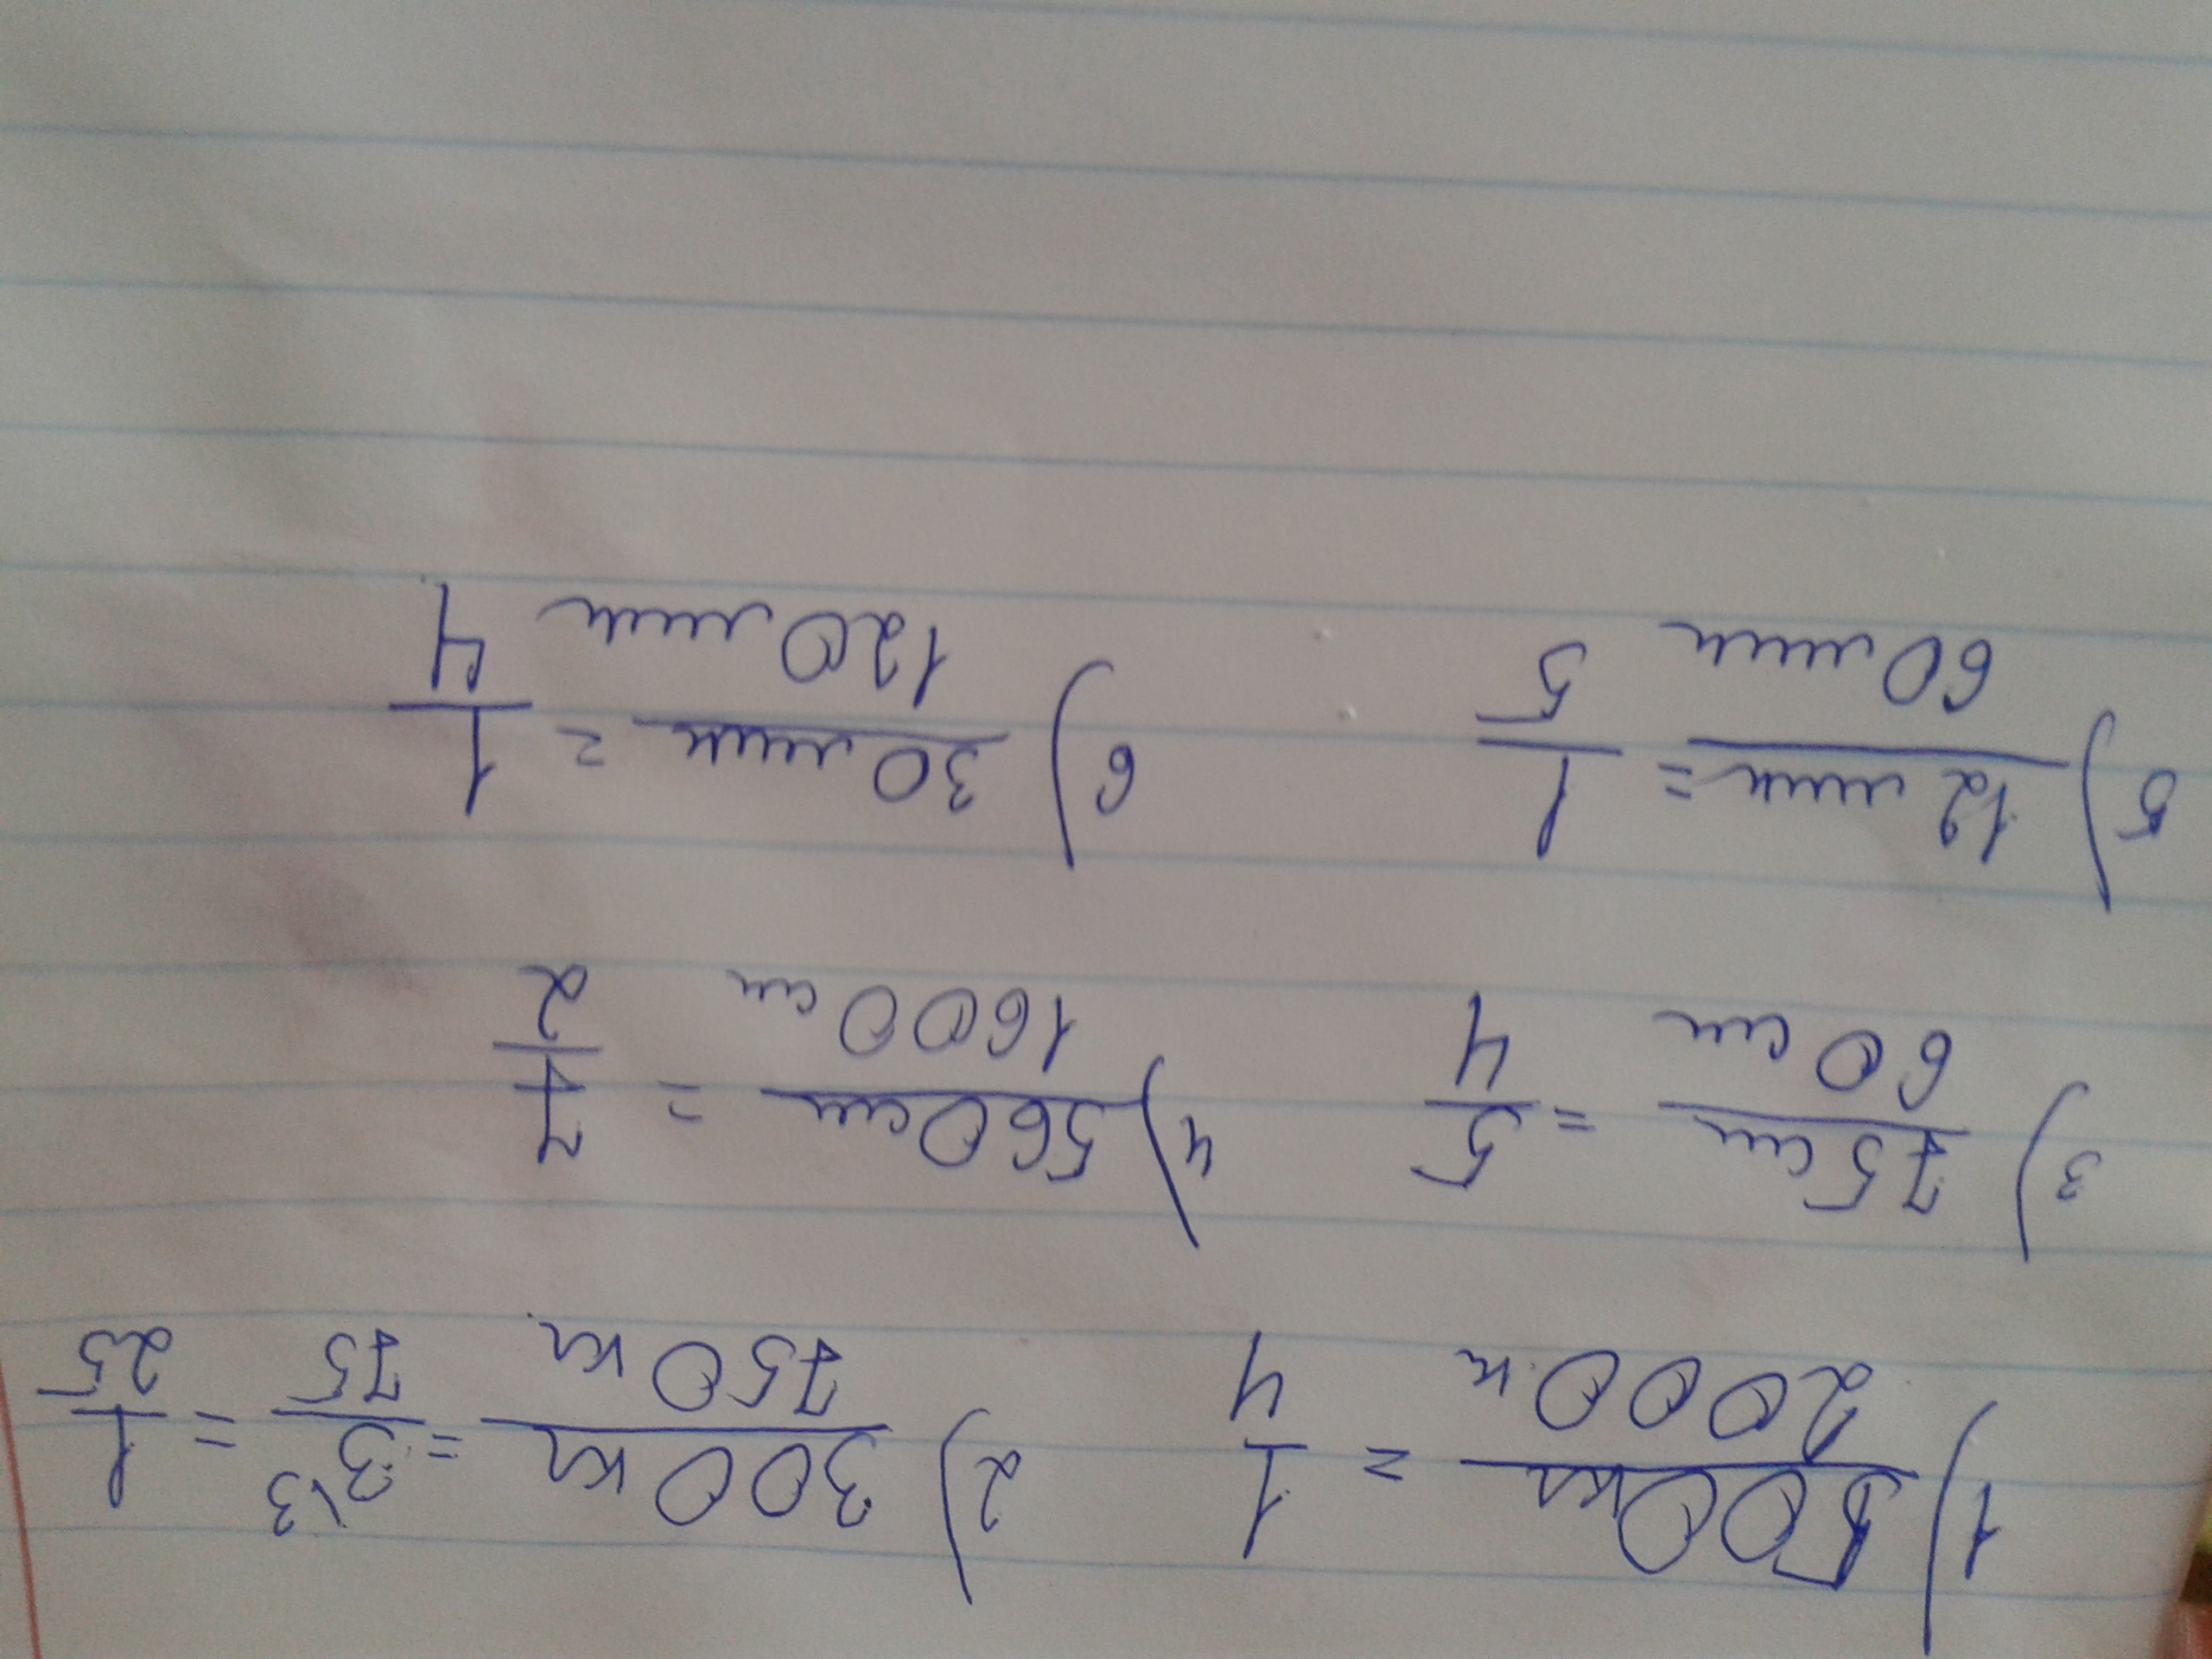 1) 500км/2000м = 1/4 2) 300км/750км = 3\3/75 = 1/25
3) 75см/60см = 5/4 4) 560см/1600см = 7/2
5) 12мин/60мин = 1/5 6) 30мин/120мин = 1/4